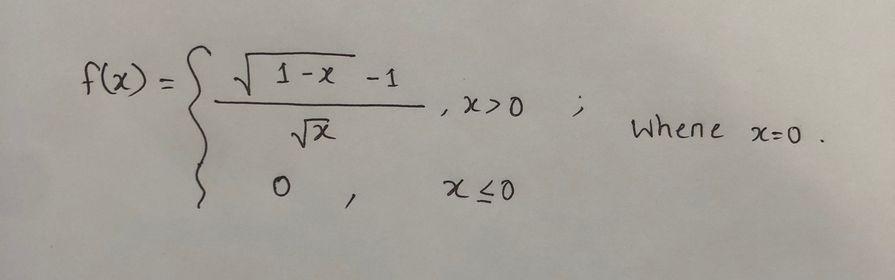 f(x) = { (√(1-x) -1)/√x , x>0 ;
0 , x≤0
Where x=0 .